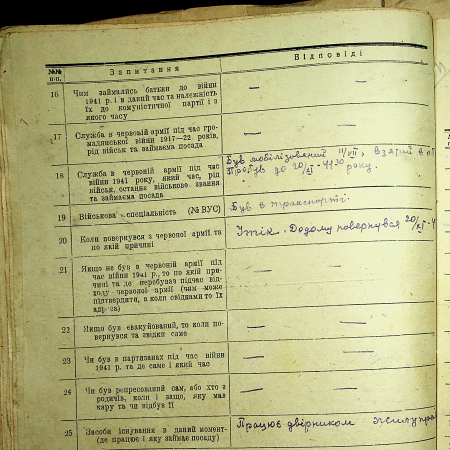 №№ п-п.
Запитання
Відповіді
16
Чим займались батьки до війни
1941 р. і в даний час та належність
їх до комуністичної партії і з
якого часу
— —
17
Служба в червоній армії під час гро-
мадянської війни 1917—22 років,
рід військ та займаєма посада
— —
18
Служба в червоній армії під час
війни 1941 року, який час, рід
військ, останнє військове звання
та займаєма посада
Був мобілізований 11/VII, взятий в
Пробув до 20/XI-41 року.
19
Військова спеціальність (№ ВУС)
Був в транспорті.
20
Коли повернувся з червоної армії та
по якій причині
Утік. Додому повернувся 20/XI-4
21
Якщо не був в червоній армії під
час війни 1941 р., то по якій при-
чині та де перебував підчас від-
ходу червоної армії (чим може
підтвердити, а коли свідками то їх
адреса)
— —
22
Якщо був евакуйований, то коли по-
вернувся та звідки саме
— —
23
Чи був в партизанах під час війни
1941 р. та де саме і який час
— —
24
Чи був репресований сам, або хто з
родичів, коли і защо, яку мав
кару та чи відбув її
— —
25
Засоби існування в даний момент-
(де працює і яку займає посаду)
Працює двірником жилупра